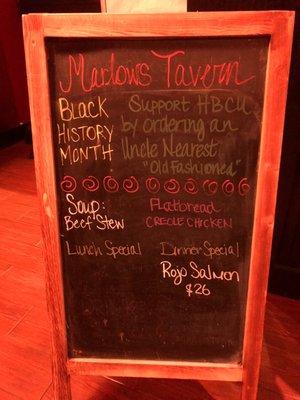 Marlows Tavern
BLACK
HISTORY
MONTH
Support HBCU
by ordering an
Uncle Nearest
"Old Fashioned"
Soup:
Beef Stew
Flatbread
CREOLE CHICKEN
Lunch Special
Dinner Special
Rojo Salmon
$26